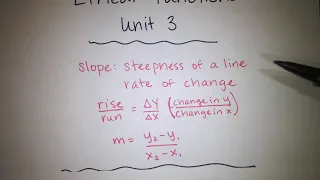 Linear Functions
Unit 3
slope: steepness of a line
rate of change
rise/run = ΔY/ΔX (change in y/change in x)
m = y₂-y₁/x₂-x₁